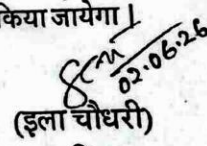 किया जायेगा।
02.06.26
(इला चौधरी)